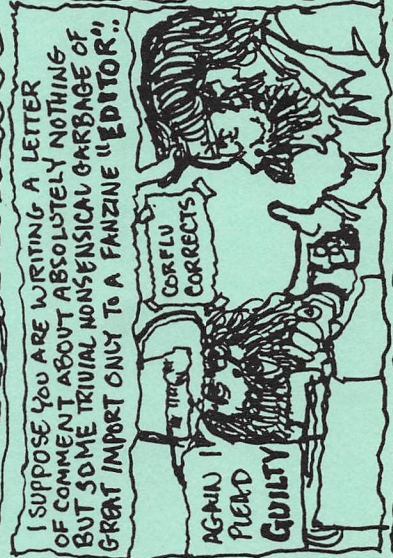 I SUPPOSE YOU ARE WRITING A LETTER
OF COMMENT ABOUT ABSOLUTELY NOTHING
BUT SOME TRIVIAL NONSENSICAL GARBAGE OF
GREAT IMPORT ONLY TO A FANZINE "EDITOR"..
CORFLU
CORRECTS
AGAIN I
PLEAD
GUILTY